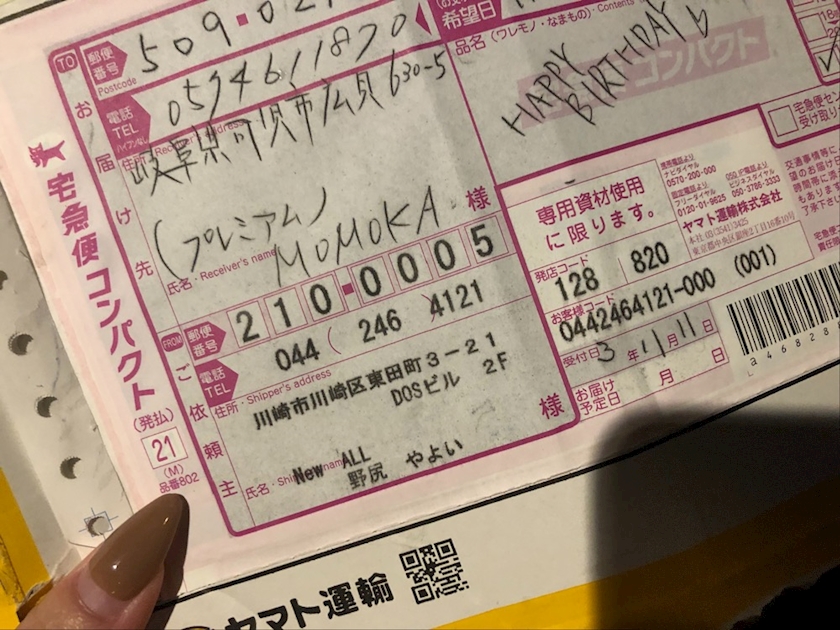 TO
郵便番号
Postcode
509
お届け先
電話
TEL
0574611870
住所
岐阜県可児市広見630-5
(プレミアム)
MOMOKA
様
氏名・Receiver's name
FROM
郵便番号
210-0005
ご依頼主
電話
TEL
044 ( 246 ) 4121
住所・Shipper's address
川崎市川崎区東田町3-21
DOSビル 2F
New ALL
野尻 やよい
様
希望日
品名(ワレモノ・なまもの)・Contents
コンパクト
HAPPY
BIRTHDAY
専用資材使用
に限ります。
携帯電話より
ナビダイヤル
0570-200-000
固定電話より
フリーダイヤル
0120-01-9625
050, IP電話より
ビジネスダイヤル
050-3786-3333
ヤマト運輸株式会社
本社・03(3541)3425
東京都中央区銀座2丁目16番10号
発店コード
128 820
お客様コード
0442464121-000 (001)
受付日 3年11月11日
お届け予定日 月 日
宅急便コンパクト
(発払)
21
(M)
品番802
ヤマト運輸